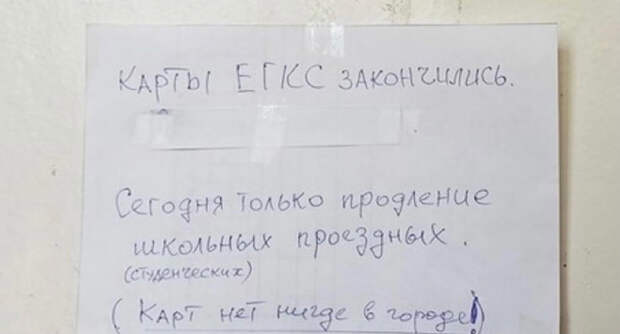 Карты ЕГКС закончились.
Сегодня только продление
школьных проездных.
(студенческих)
(Карт нет нигде в городе!)